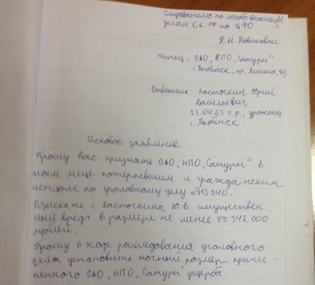 Следователю по особо важным
делам СК РФ по ЦАО
Я.И. Новиковой
Истец: ОАО „НПО „Сатурн"
г. Рыбинск, пр. Ленина, 163
Ответчик: Ласточкин Юрий
Васильевич
21.04.65 г.р., уроженец
г. Рыбинск
Исковое заявление
Прошу Вас признать ОАО „НПО „Сатурн" в
моем лице потерпевшим и граждан ским
истцом по уголовному делу
Взыскать с Ласточкина Ю.В. имуществен
ный вред в размере не менее 000
рублей.
Прошу в ходе расследования уголовного
дела установить точный размер причи-
ненного ОАО „НПО „Сатурн" ущерба.